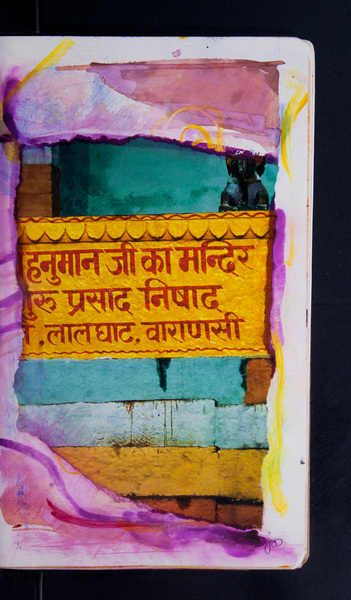 हनुमान जी का मन्दिर
रु प्रसाद निषाद
, लाल घाट, वाराणसी